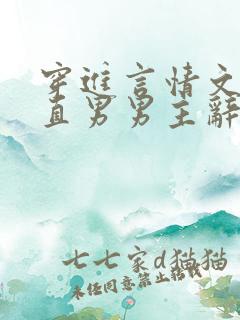 穿进言情文
直男男主辭
七七家d猫猫
未经同意禁止转载